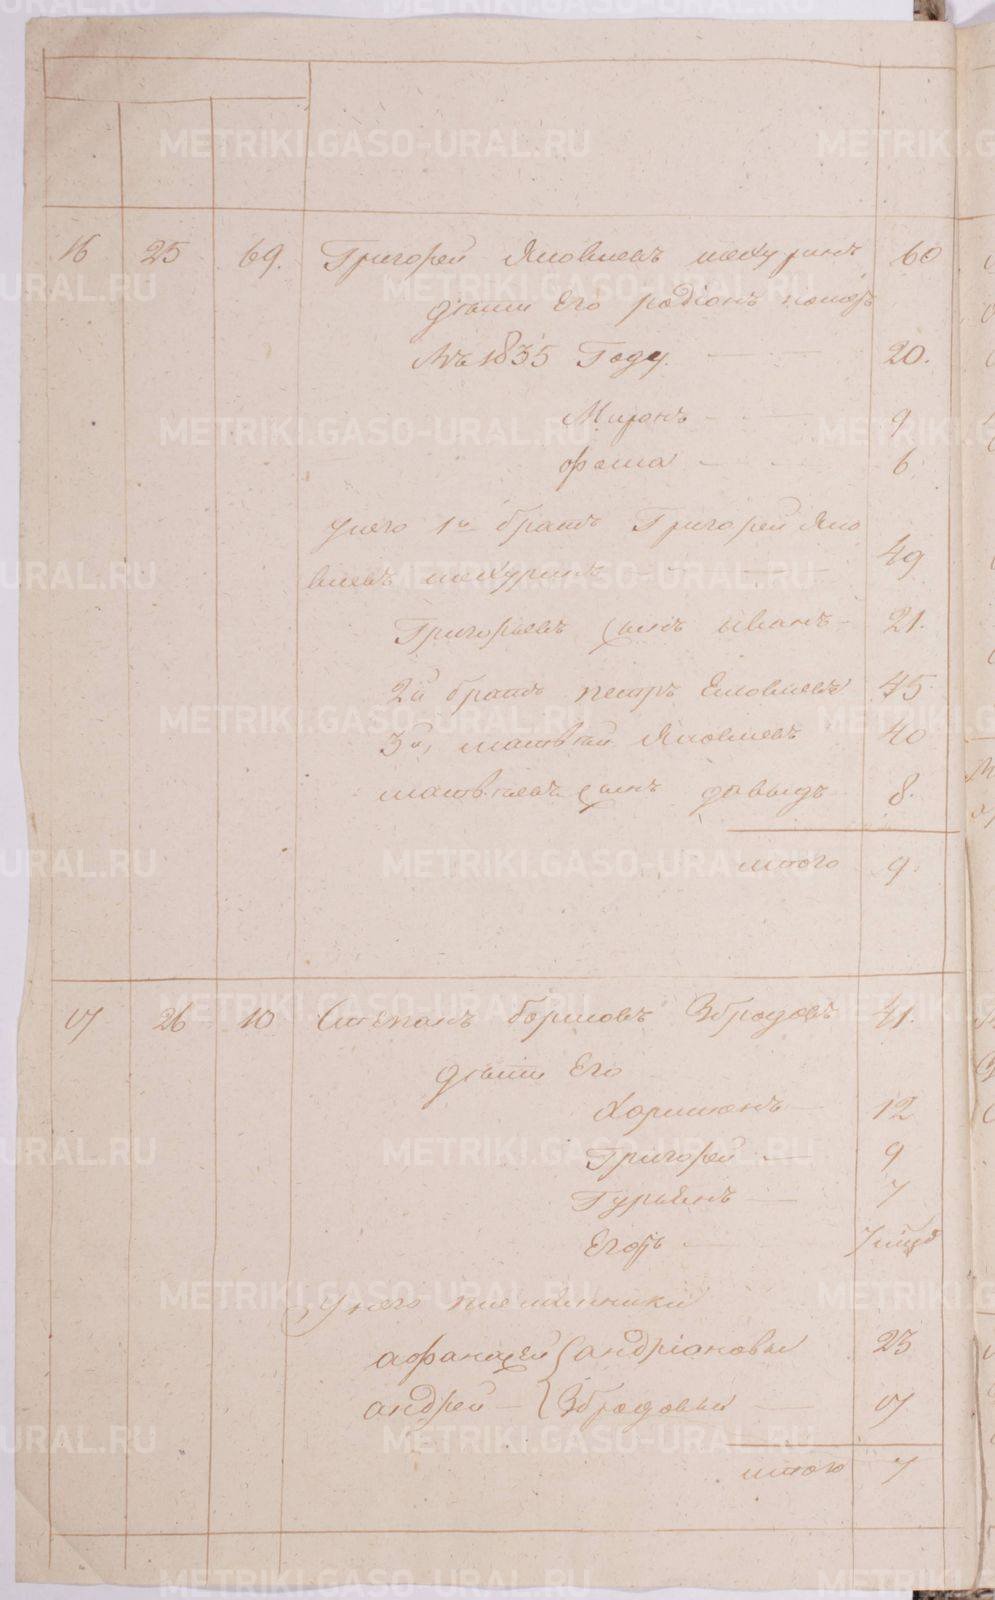 16 25 69. Григорей Яковлевъ шахуринъ 60
дѣти Его родiонъ померъ
Въ 1835 Году. 20.
Миронъ 9
фома 6
У него 1й братъ Григорей Яко
влевъ шахуринъ 49
Григорьевъ сынъ иванъ 21.
2й братъ петръ Ековлевъ 45
3й, матвѣй Яковлевъ 40
матвѣевъ сынъ давыдъ 8.
итого 9.
17 26 10 Степанъ борисовъ Збродовъ 41.
дѣти Его
Харитонъ 12
Григорей 9
Гурьянъ 7
Егоръ
У него племянники
афанасей андрiановы 23
андрей Збродовы 17
итого 7
METRIKI.GASO-URAL.RU